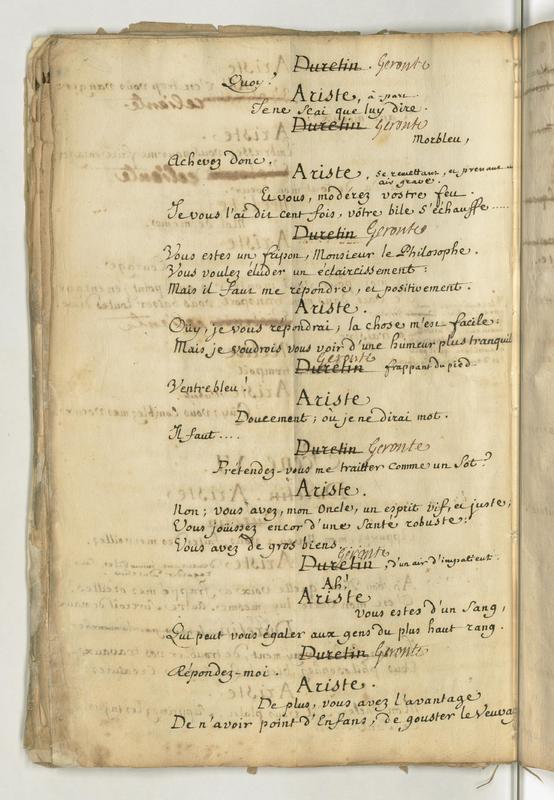 Duretin . Geronte
Quoy ?
Ariste, à part
Je ne sçai que luy dire .
Duretin Geronte
Morbleu,
Achevez donc .
Ariste, se remettant, et prenant un
air grave .
Et vous, moderez vostre feu .
Je vous l'ai dit cent fois, vôtre bile s'échauffe .....
Duretin Geronte
Vous estes un fripon, Monsieur le Philosophe .
Vous voulez éluder un éclaircissement :
Mais il faut me répondre, et positivement .
Ariste .
Oüy, je vous répondrai ; la chose m'est facile :
Mais je voudrois vous voir d'une humeur plus tranquil
Geronte
Duretin frappant du pied
Ventrebleu !
Ariste
Doucement ; où je ne dirai mot .
Il faut ....
Duretin Geronte
Prétendez-vous me traitter comme un Sot ?
Ariste .
Non ; vous avez, mon Oncle, un esprit vif, et juste ;
Vous joüissez encor d'une Santé robuste :
Vous avez de gros biens
Geronte
Duretin, d'un air d'impatient .
Ah !
Ariste
vous estes d'un Sang,
Qui peut vous égaler aux gens du plus haut rang .
Duretin Geronte
Répondez-moi .
Ariste .
De plus, vous avez l'avantage
De n'avoir point d'Enfans, de gouster le Veuvag